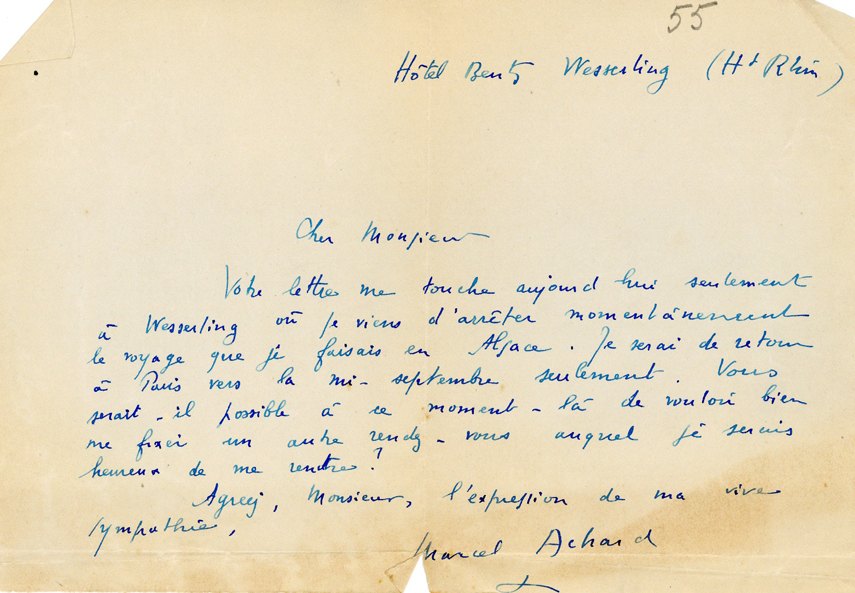 55
Hôtel Bentz Wesserling (Ht Rhin)
Cher Monsieur
Votre lettre me touche aujourd hui seulement
à Wesserling où je viens d'arrêter momentanement
le voyage que je faisais en Alsace. Je serai de retour
à Paris vers la mi-septembre seulement. Vous
serait-il possible à ce moment-là de vouloir bien
me fixer un autre rendez-vous auquel je serais
heureux de me rendre?
Agreez, Monsieur, l'expression de ma vive
sympathie,
Marcel Achard